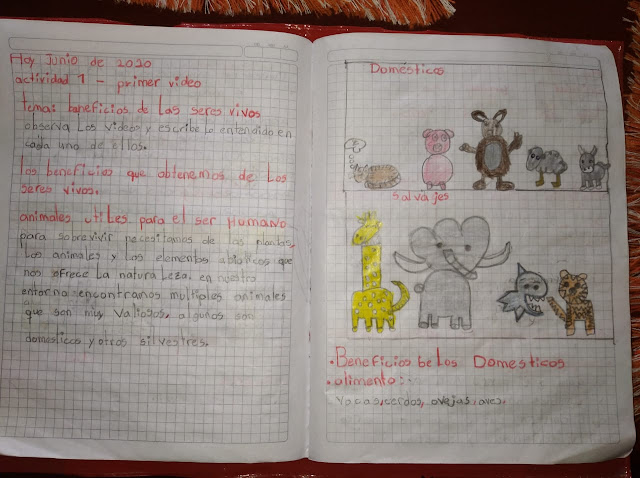 Hoy Junio de 2020
actividad 1 - primer video
tema: beneficios de las seres vivos
observa los videos y escribe lo entendido en
cada uno de ellos.
los beneficios que obtenemos de los
seres vivos.
animales utiles para el ser Humano
para sobrevivir necesitamos de las plantas,
los animales y los elementos abioticos que
nos ofrece la naturaleza. en nuestro
entorno encontramos multiples animales
que son muy valiosos, algunos son
domesticos y otros silvestres.
Domésticos
Salvajes
• Beneficios be Los Domesticos
• alimento:
vacas, cerdos, ovejas, aves.